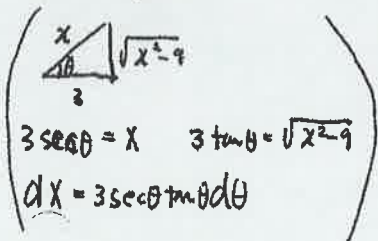 x
θ
√x²-9
3
3 secθ = x 3 tanθ = √x²-9
dx = 3 secθ tanθ dθ